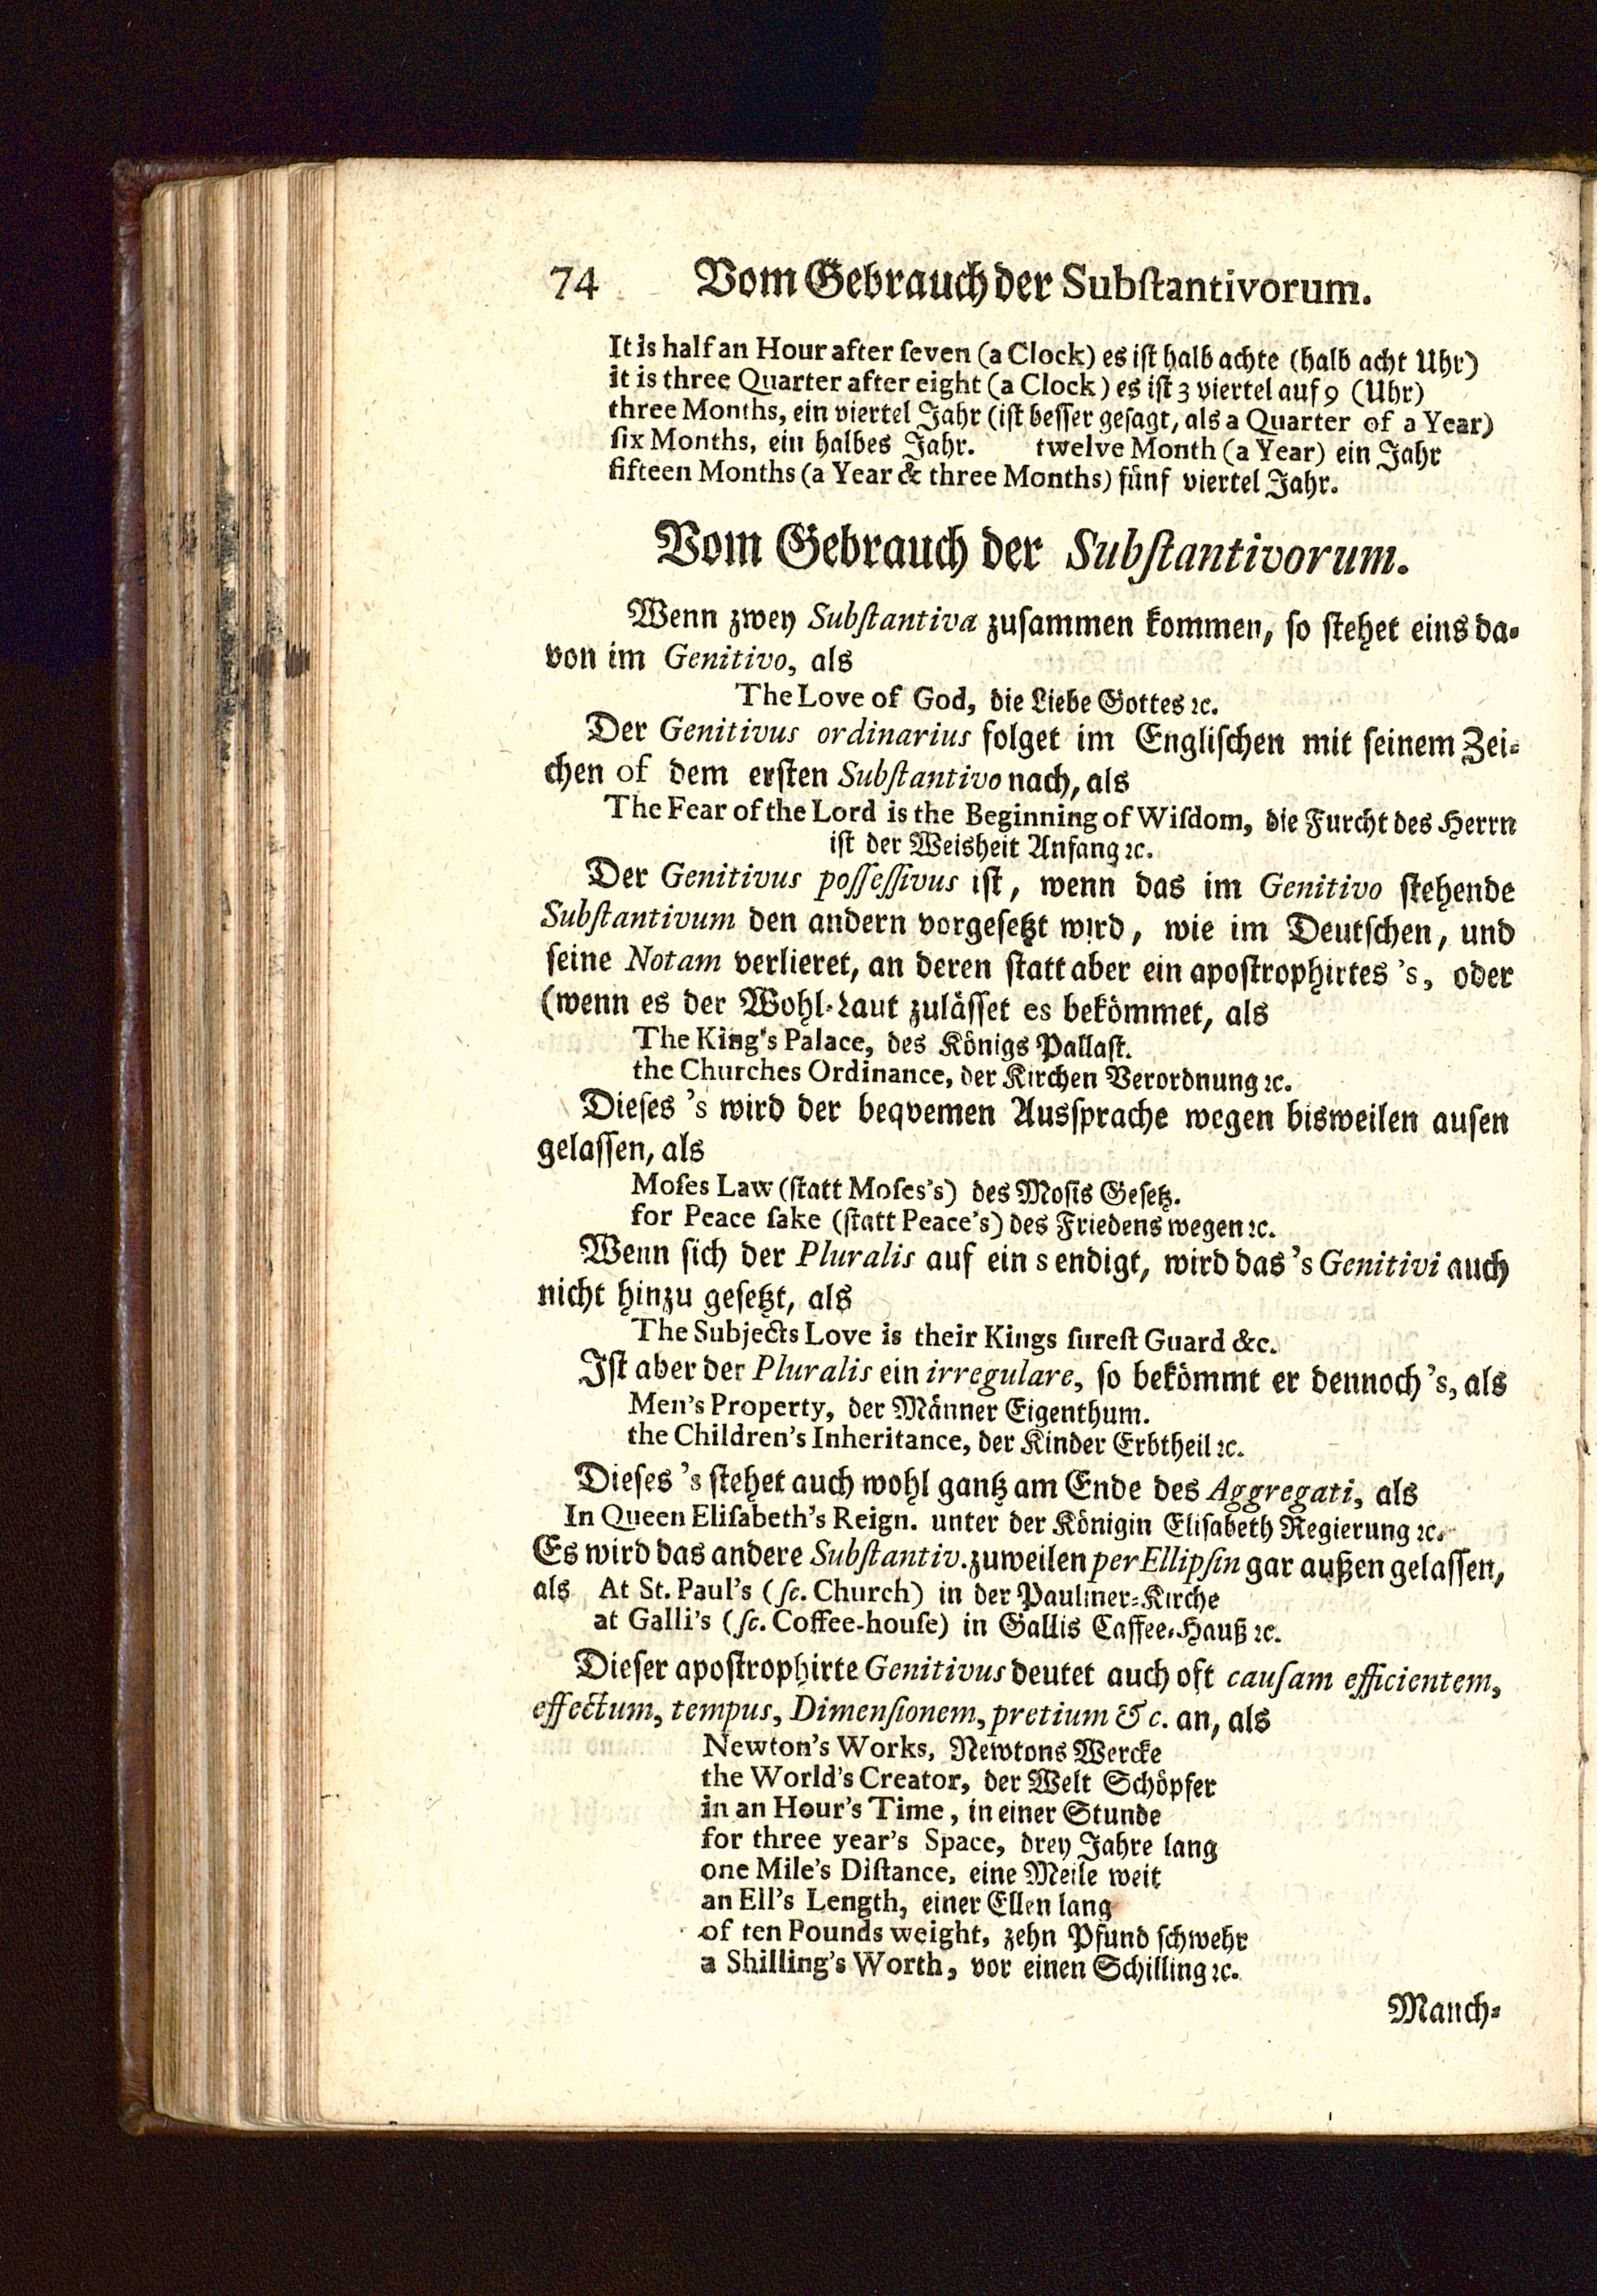 74 Vom Gebrauch der Substantivorum.
It is half an Hour after ſeven (a Clock) es iſt halb achte (halb acht Uhr)
it is three Quarter after eight (a Clock) es iſt 3 viertel auf 9 (Uhr)
three Months, ein viertel Jahr (iſt beſſer geſagt, als a Quarter of a Year)
ſix Months, ein halbes Jahr. twelve Month (a Year) ein Jahr
fifteen Months (a Year & three Months) fünf viertel Jahr.
Vom Gebrauch der Subſtantivorum.
Wenn zwey Subſtantiva zuſammen kommen, ſo ſtehet eins da-
von im Genitivo, als
The Love of God, die Liebe Gottes ꝛc.
Der Genitivus ordinarius folget im Engliſchen mit ſeinem Zei-
chen of dem erſten Subſtantivo nach, als
The Fear of the Lord is the Beginning of Wiſdom, die Furcht des Herrn
iſt der Weisheit Anfang ꝛc.
Der Genitivus poſſeſſivus iſt, wenn das im Genitivo ſtehende
Subſtantivum den andern vorgeſetzt wird, wie im Deutſchen, und
ſeine Notam verlieret, an deren ſtatt aber ein apoſtrophirtes 's, oder
(wenn es der Wohl-Laut zuläſſet es bekömmet, als
The King's Palace, des Königs Pallaſt.
the Churches Ordinance, der Kirchen Verordnung ꝛc.
Dieſes 's wird der beqvemen Ausſprache wegen bisweilen auſen
gelaſſen, als
Moſes Law (ſtatt Moſes's) des Moſis Geſetz.
for Peace ſake (ſtatt Peace's) des Friedens wegen ꝛc.
Wenn ſich der Pluralis auf ein s endigt, wird das 's Genitivi auch
nicht hinzu geſetzt, als
The Subjects Love is their Kings ſureſt Guard &c.
Iſt aber der Pluralis ein irregulare, ſo bekömmt er dennoch 's, als
Men's Property, der Männer Eigenthum.
the Children's Inheritance, der Kinder Erbtheil ꝛc.
Dieſes 's ſtehet auch wohl gantz am Ende des Aggregati, als
In Queen Eliſabeth's Reign. unter der Königin Eliſabeth Regierung ꝛc.
Es wird das andere Subſtantiv. zuweilen per Ellipſin gar außen gelaſſen,
als At St. Paul's (ſc. Church) in der Pauliner-Kirche
at Galli's (ſc. Coffee-houſe) in Gallis Caffee-Hauß ꝛc.
Dieſer apoſtrophirte Genitivus deutet auch oft cauſam efficientem,
effectum, tempus, Dimenſionem, pretium &c. an, als
Newton's Works, Newtons Wercke
the World's Creator, der Welt Schöpfer
in an Hour's Time, in einer Stunde
for three year's Space, drey Jahre lang
one Mile's Diſtance, eine Meile weit
an Ell's Length, einer Ellen lang
of ten Pounds weight, zehn Pfund ſchwehr
a Shilling's Worth, vor einen Schilling ꝛc.
Manch-